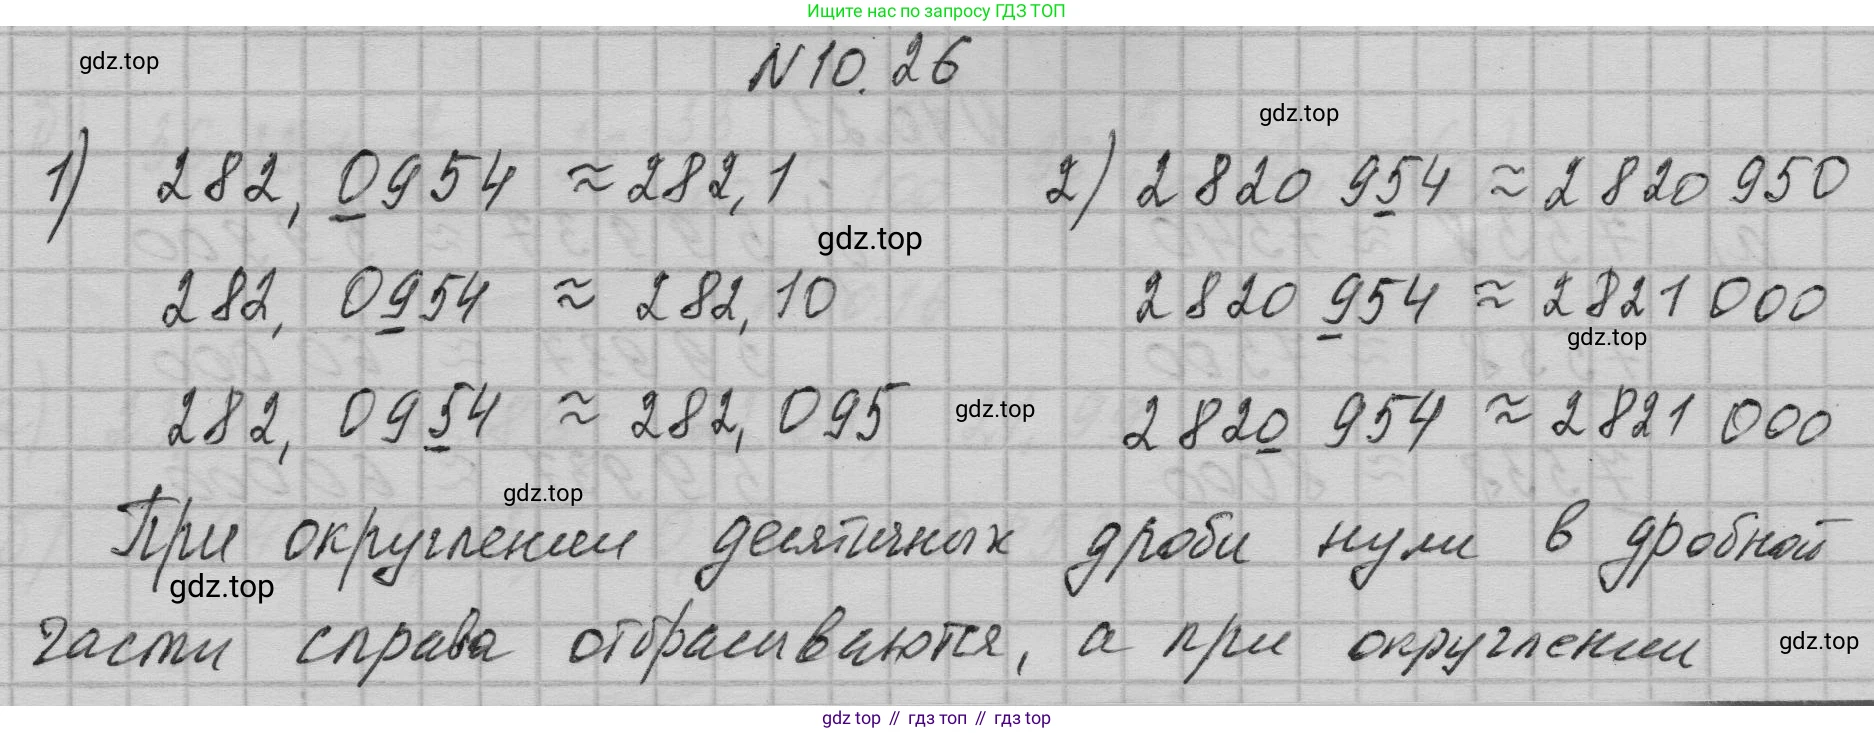 Ищите нас по запросу ГДЗ ТОП
gdz.top
N 10.26
gdz.top
1) 282,0954 ≈ 282,1
2) 2820 954 ≈ 2820 950
gdz.top
282,0954 ≈ 282,10
2820 954 ≈ 2821 000
gdz.top
282,0954 ≈ 282,095
gdz.top
2820 954 ≈ 2821 000
gdz.top
При округлении десятичных дроби нули в дробной
gdz.top
части справа отбрасываются, а при округлении
gdz.top
gdz top // гдз топ // gdz top